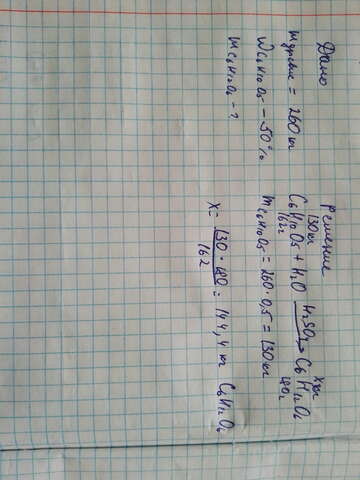 Дано
m древес = 260 кг
W C6H10O5 – 50%
m C6H12O6 – ?
Решение
130кг x кг
C6H10O5 + H2O H2SO4→ C6H12O6
162г 180г
m C6H10O5 = 260·0,5 = 130кг
x = 130·180 / 162 = 144,4 кг C6H12O6